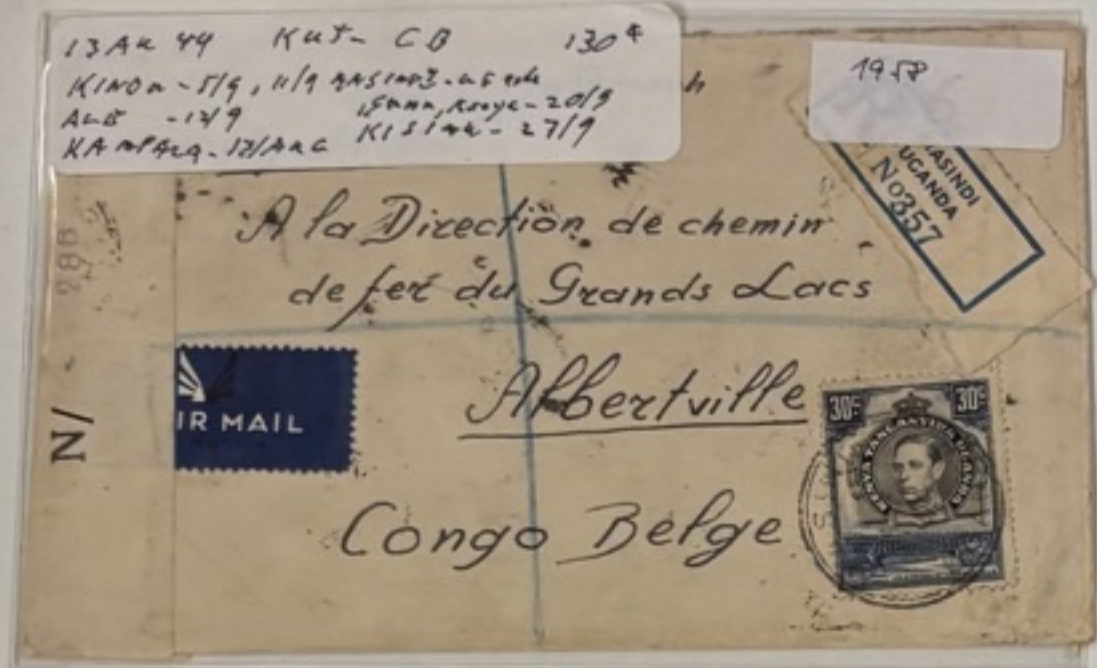 13 AU 44 KUT- CB 130
KINDU - 5/9, 11/9 MASINDI-
ALB - 12/9 - 20/9
KAMPALA - 17/AUG KISUMU - 27/9
h
1958
MASINDI
UGANDA
No357
A la Direction de chemin
de fer du Grands Lacs
Albertville
Congo Belge
IR MAIL
N/
30c 30c
KENYA TANGANYIKA UGANDA